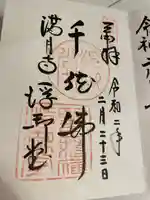 奉拝
令和二年
二月二十三日
千体佛
満月寺 浮御堂
令和